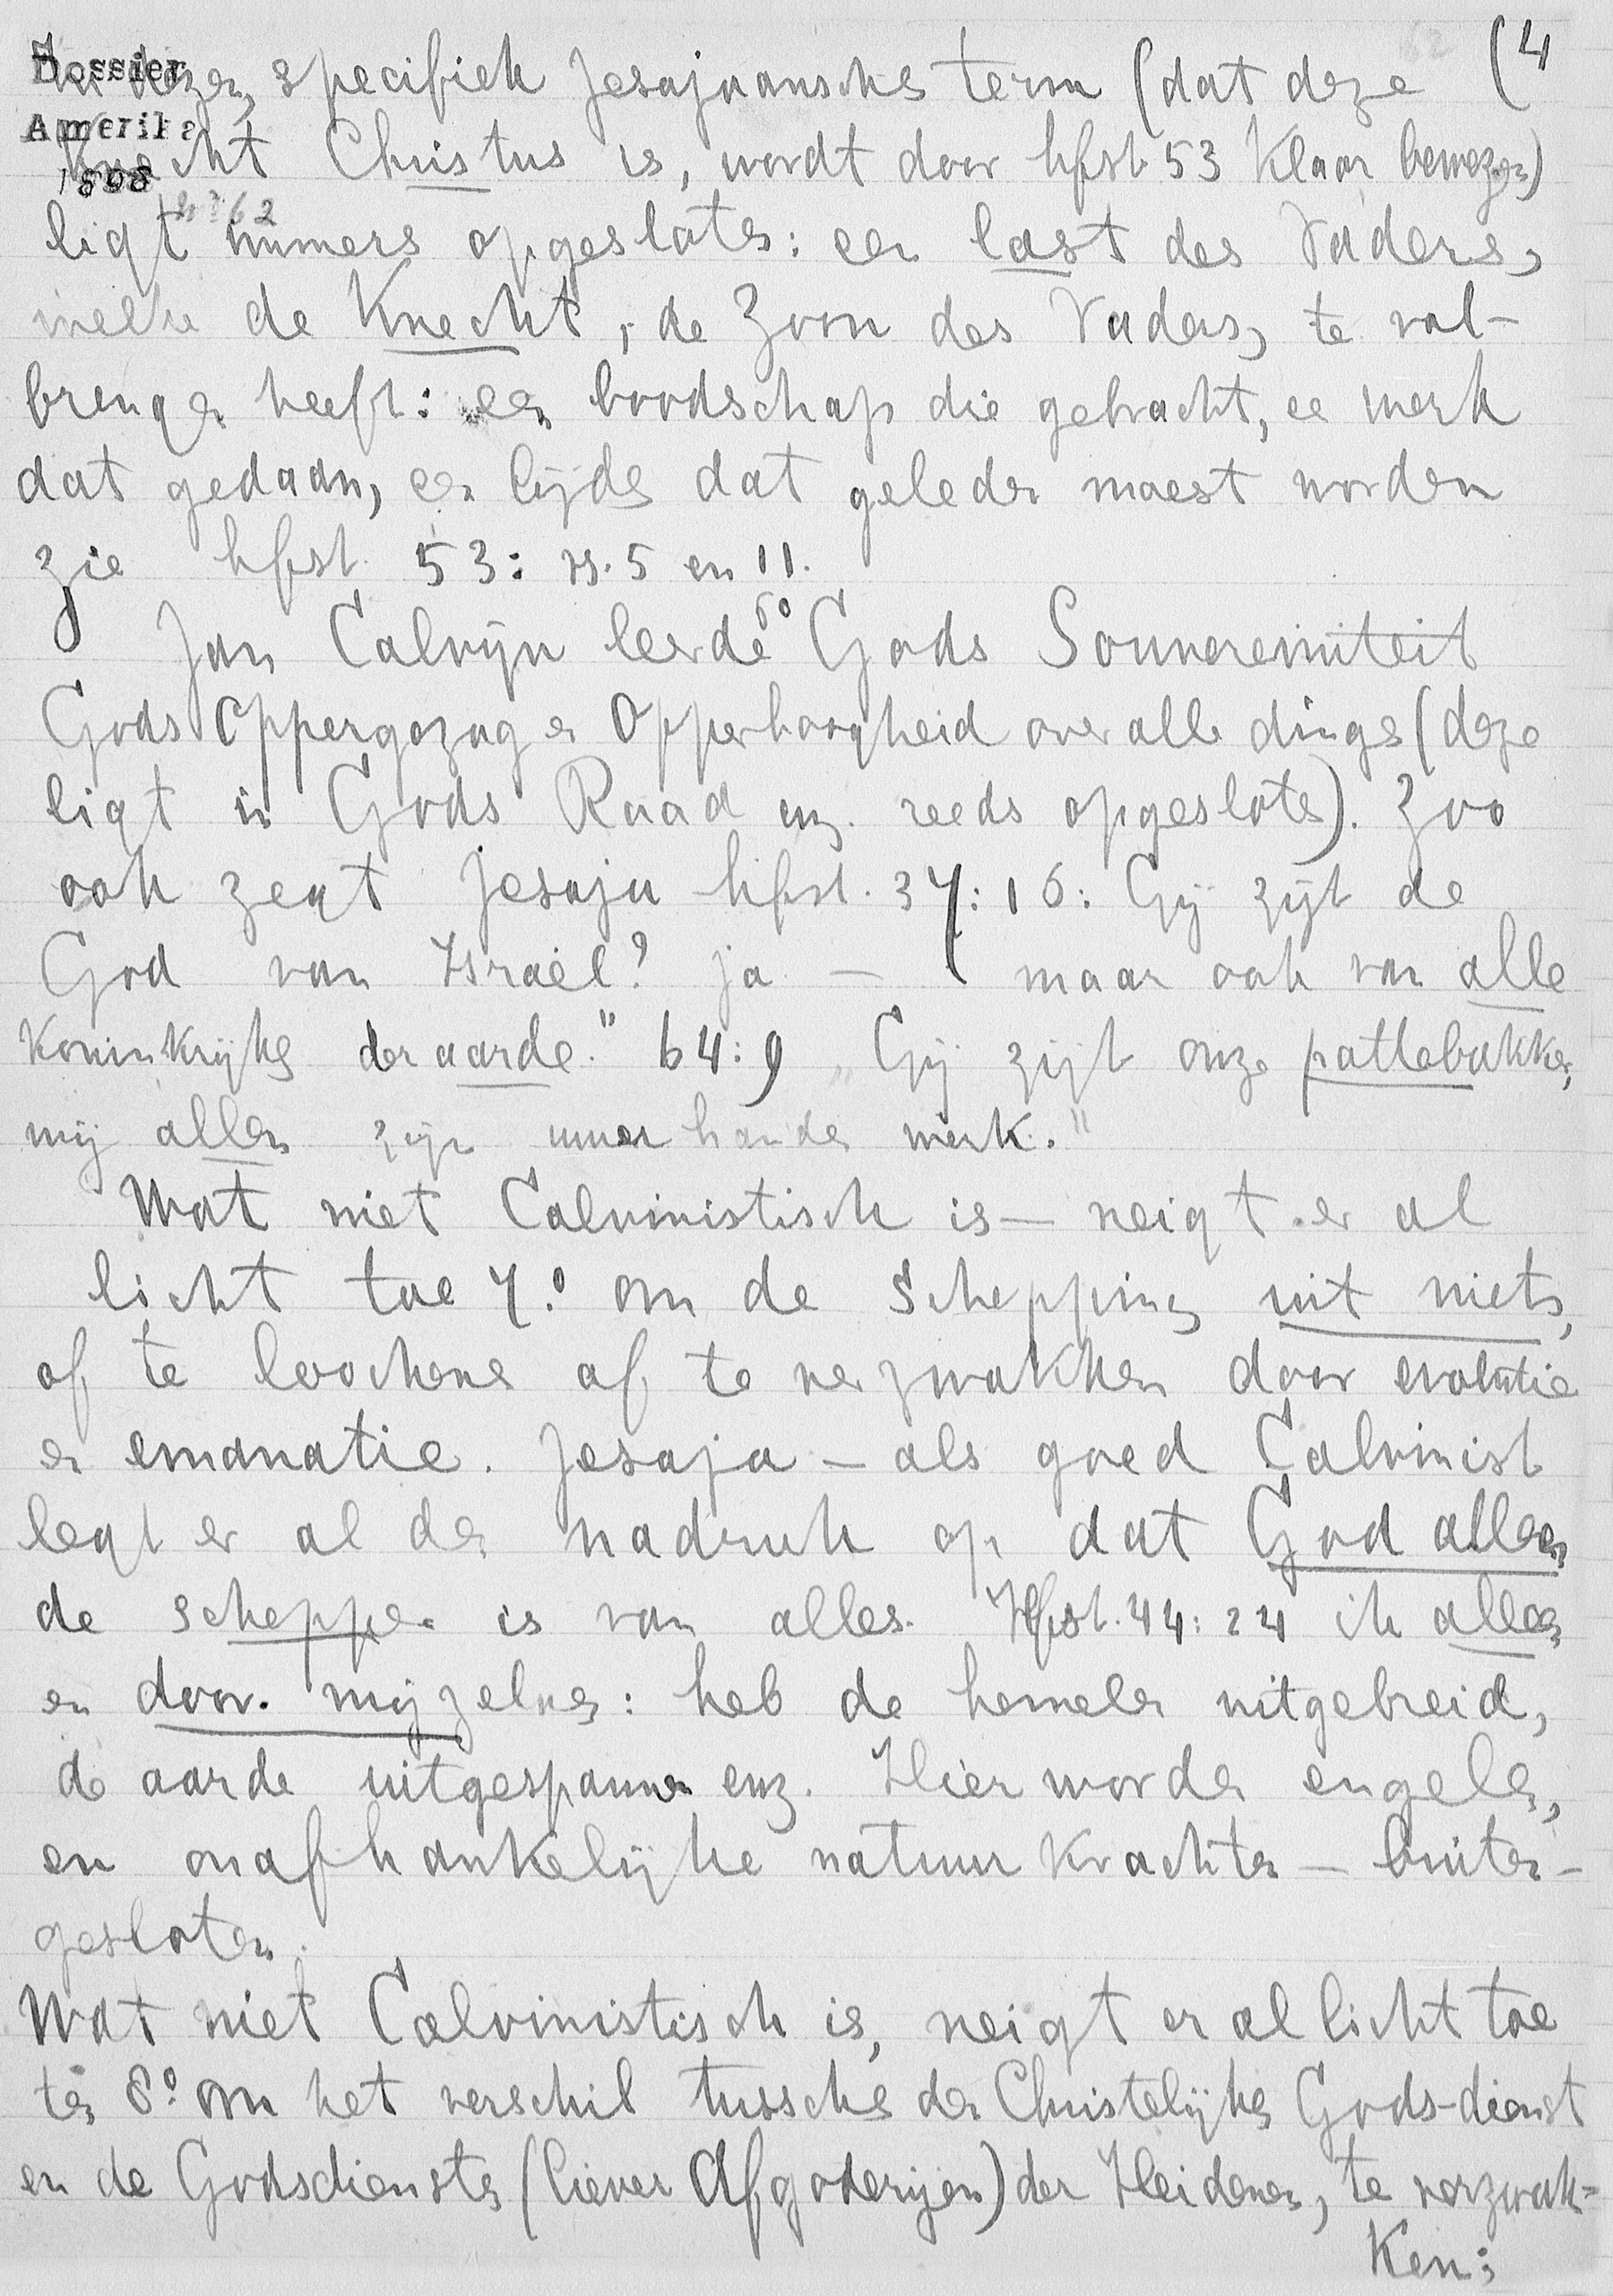 Dossier
Amerika
1898
no 62
(4
In dezen, specifiek Jesajaansche term (dat deze
Knecht Christus is, wordt door hfst 53 klaar bewezen)
ligt immers opgesloten: een last des Vaders,
welke de Knecht, de Zoon des Vaders, te vol-
brengen heeft: een boodschap die gebracht, een werk
dat gedaan, een lijden dat geleden moest worden
zie hfst. 53: vs. 5 en 11.
Jan Calvijn leerde 6o Gods Souvereiniteit
Gods Oppergezag en Opperhoogheid over alle dingen (deze
ligt in Gods Raad enz. reeds opgesloten). Zoo
ook zegt Jesaja hfst. 37:16: Gij zijt de
God van Israël? ja — maar ook van alle
Koninkrijken der aarde." 64:9 „Gij zijt onze pottebakker,
wij allen zijn uwer handen werk."
Wat niet Calvinistisch is — neigt er al
licht toe 7.o om de Schepping uit niets,
of te loochenen of te verzwakken door evolutie
en emanatie. Jesaja — als goed Calvinist
legt er al den nadruk op dat God alleen
de schepper is van alles. Hfst. 44:24 ik alleen
en door mijzelven: heb de hemelen uitgebreid,
de aarde uitgespannen enz. Hier worden engelen,
en onafhankelijke natuur krachten — buiten-
gesloten.
Wat niet Calvinistisch is, neigt er al licht toe
ten 8o om het verschil tusschen den Christelijken Gods-dienst
en de Godsdiensten (liever Afgoderijen) der Heidenen, te verzwak=
Ken;